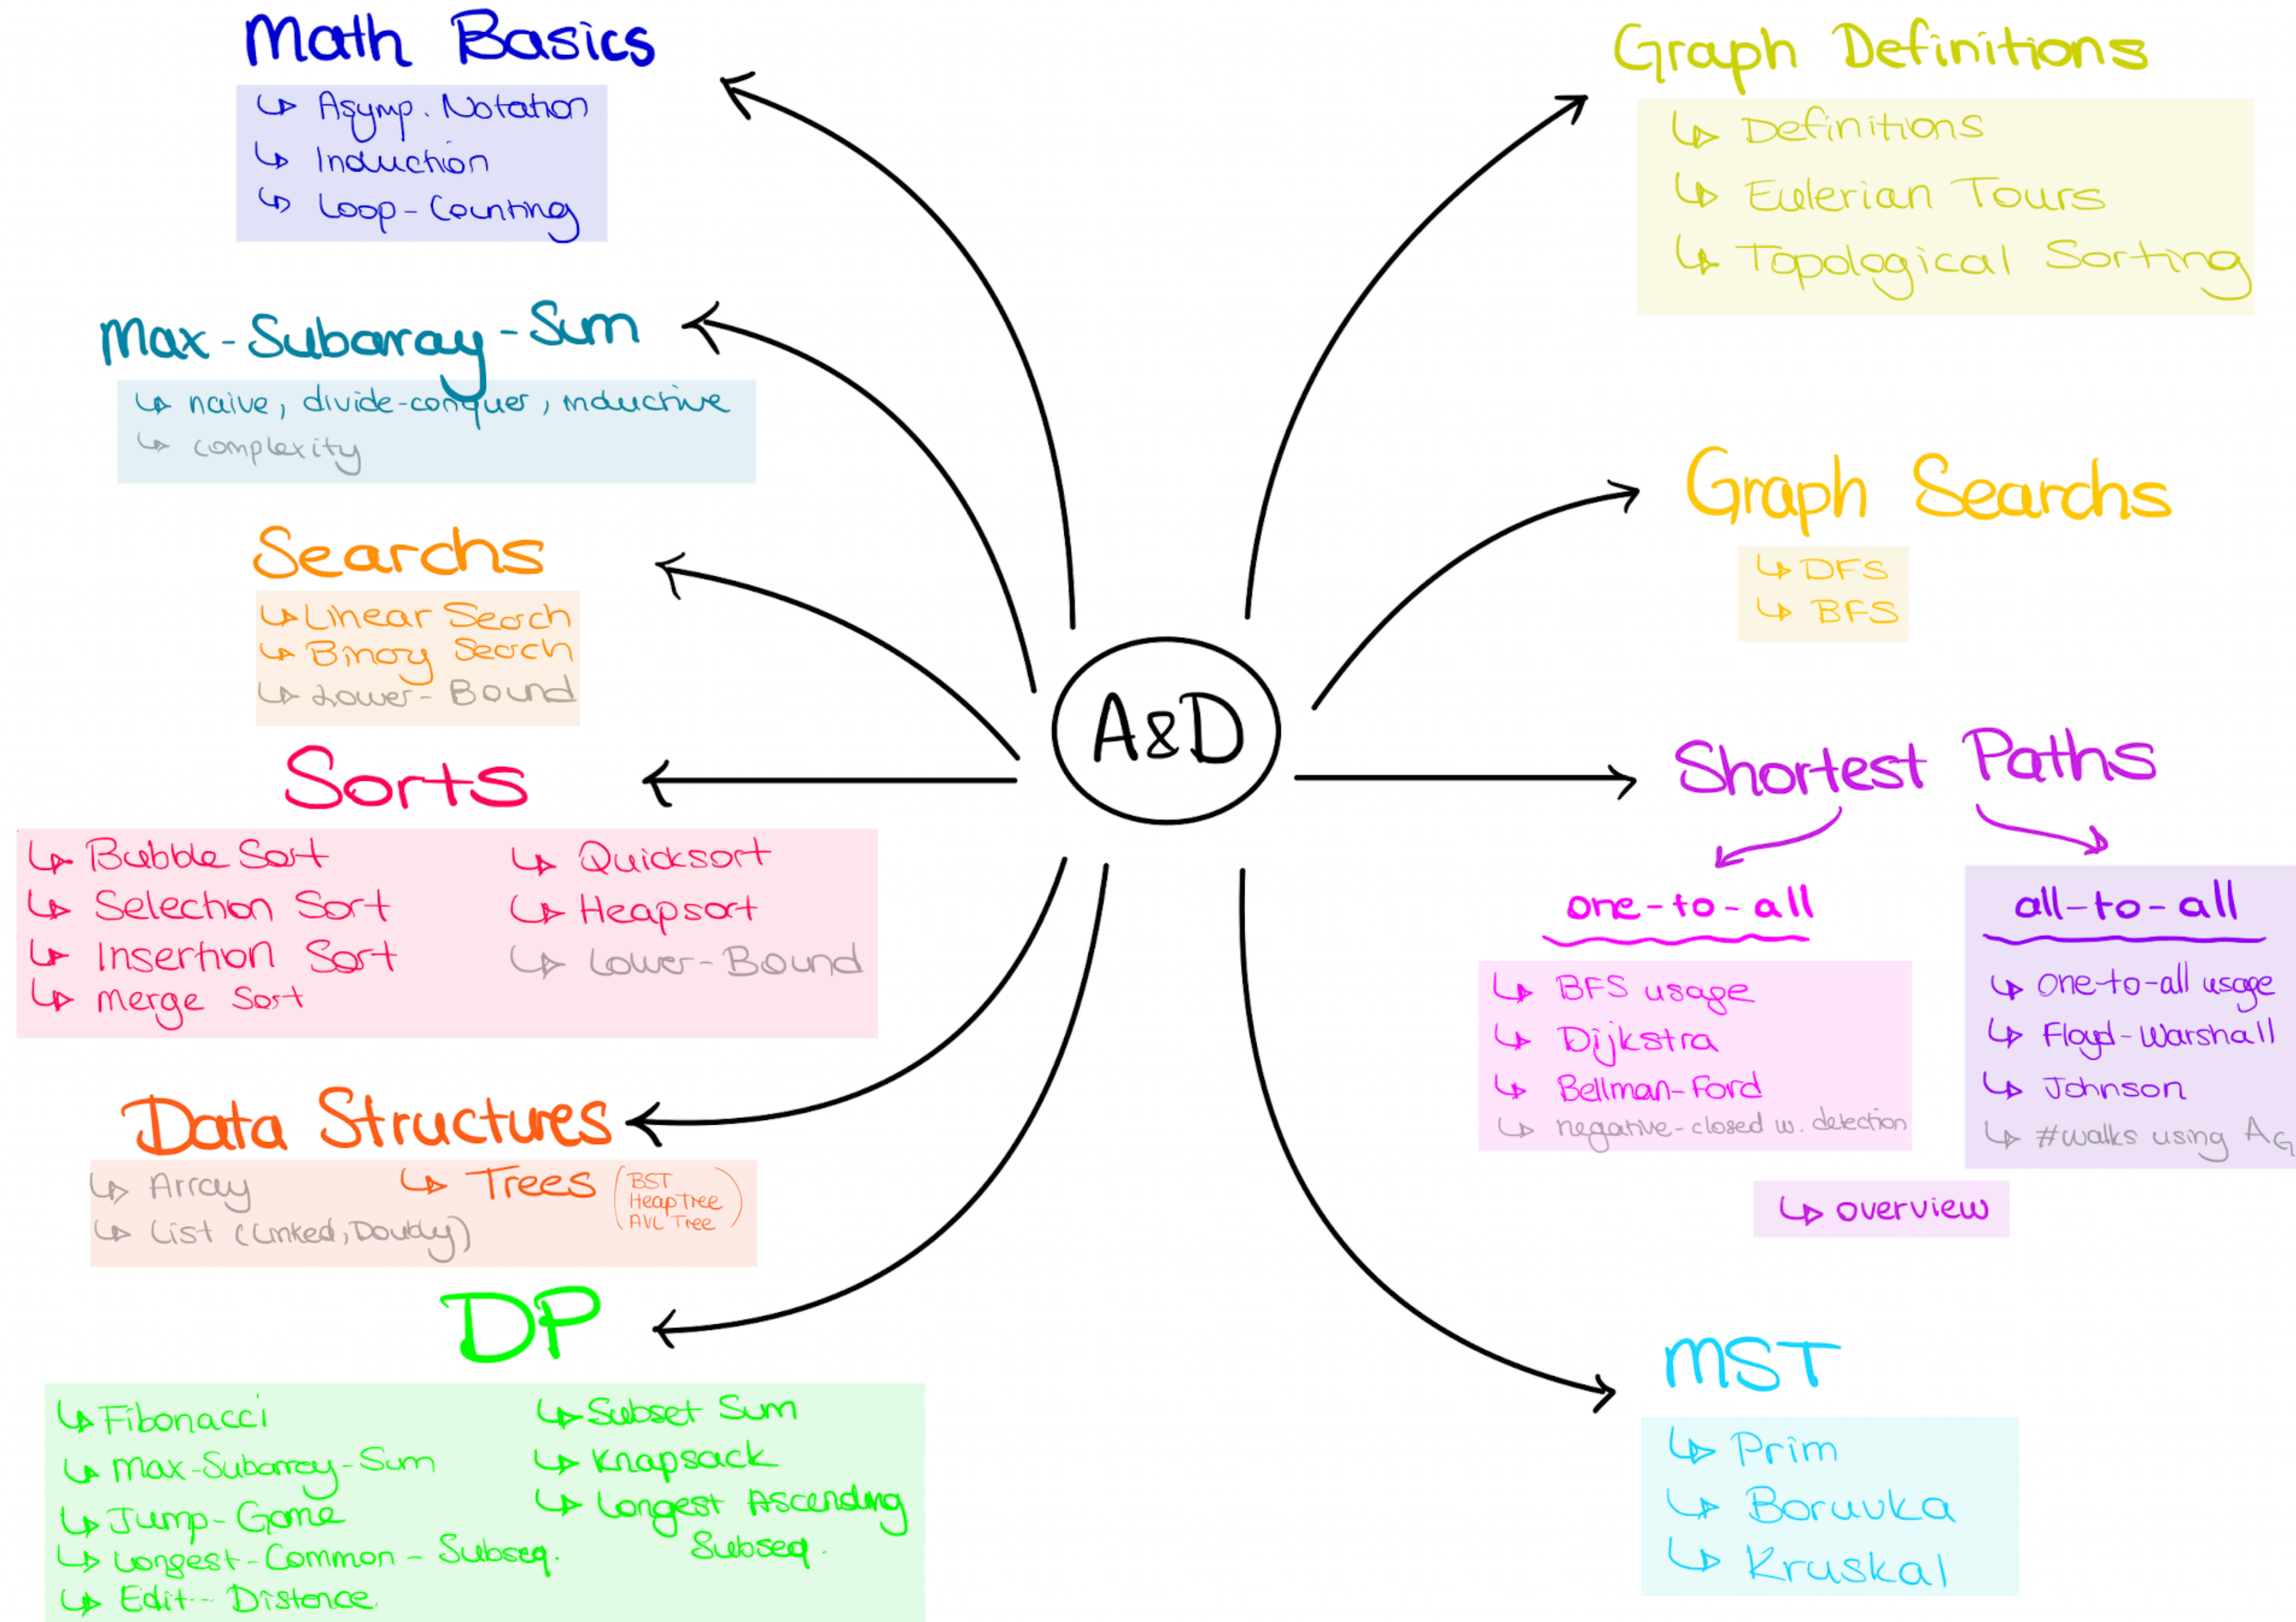 Math Basics
↳ Asymp. Notation
↳ Induction
↳ Loop-Counting
Max-Subarray-Sum
↳ naive, divide-conquer, inductive
↳ complexity
Searchs
↳ Linear Search
↳ Binary Search
↳ Lower-Bound
Sorts
↳ Bubble Sort
↳ Selection Sort
↳ Insertion Sort
↳ Merge Sort
↳ Quicksort
↳ Heapsort
↳ Lower-Bound
Data Structures
↳ Array
↳ List (Linked, Doubly)
↳ Trees
(BST
HeapTree
AVL Tree)
DP
↳ Fibonacci
↳ Max-Subarray-Sum
↳ Jump-Game
↳ Longest-Common-Subseq.
↳ Edit-Distance
↳ Subset Sum
↳ Knapsack
↳ Longest Ascending
Subseq.
A&D
Graph Definitions
↳ Definitions
↳ Eulerian Tours
↳ Topological Sorting
Graph Searchs
↳ DFS
↳ BFS
Shortest Paths
one-to-all
↳ BFS usage
↳ Dijkstra
↳ Bellman-Ford
↳ negative-closed w. detection
all-to-all
↳ one-to-all usage
↳ Floyd-Warshall
↳ Johnson
↳ #walks using AG
↳ overview
MST
↳ Prim
↳ Boruvka
↳ Kruskal